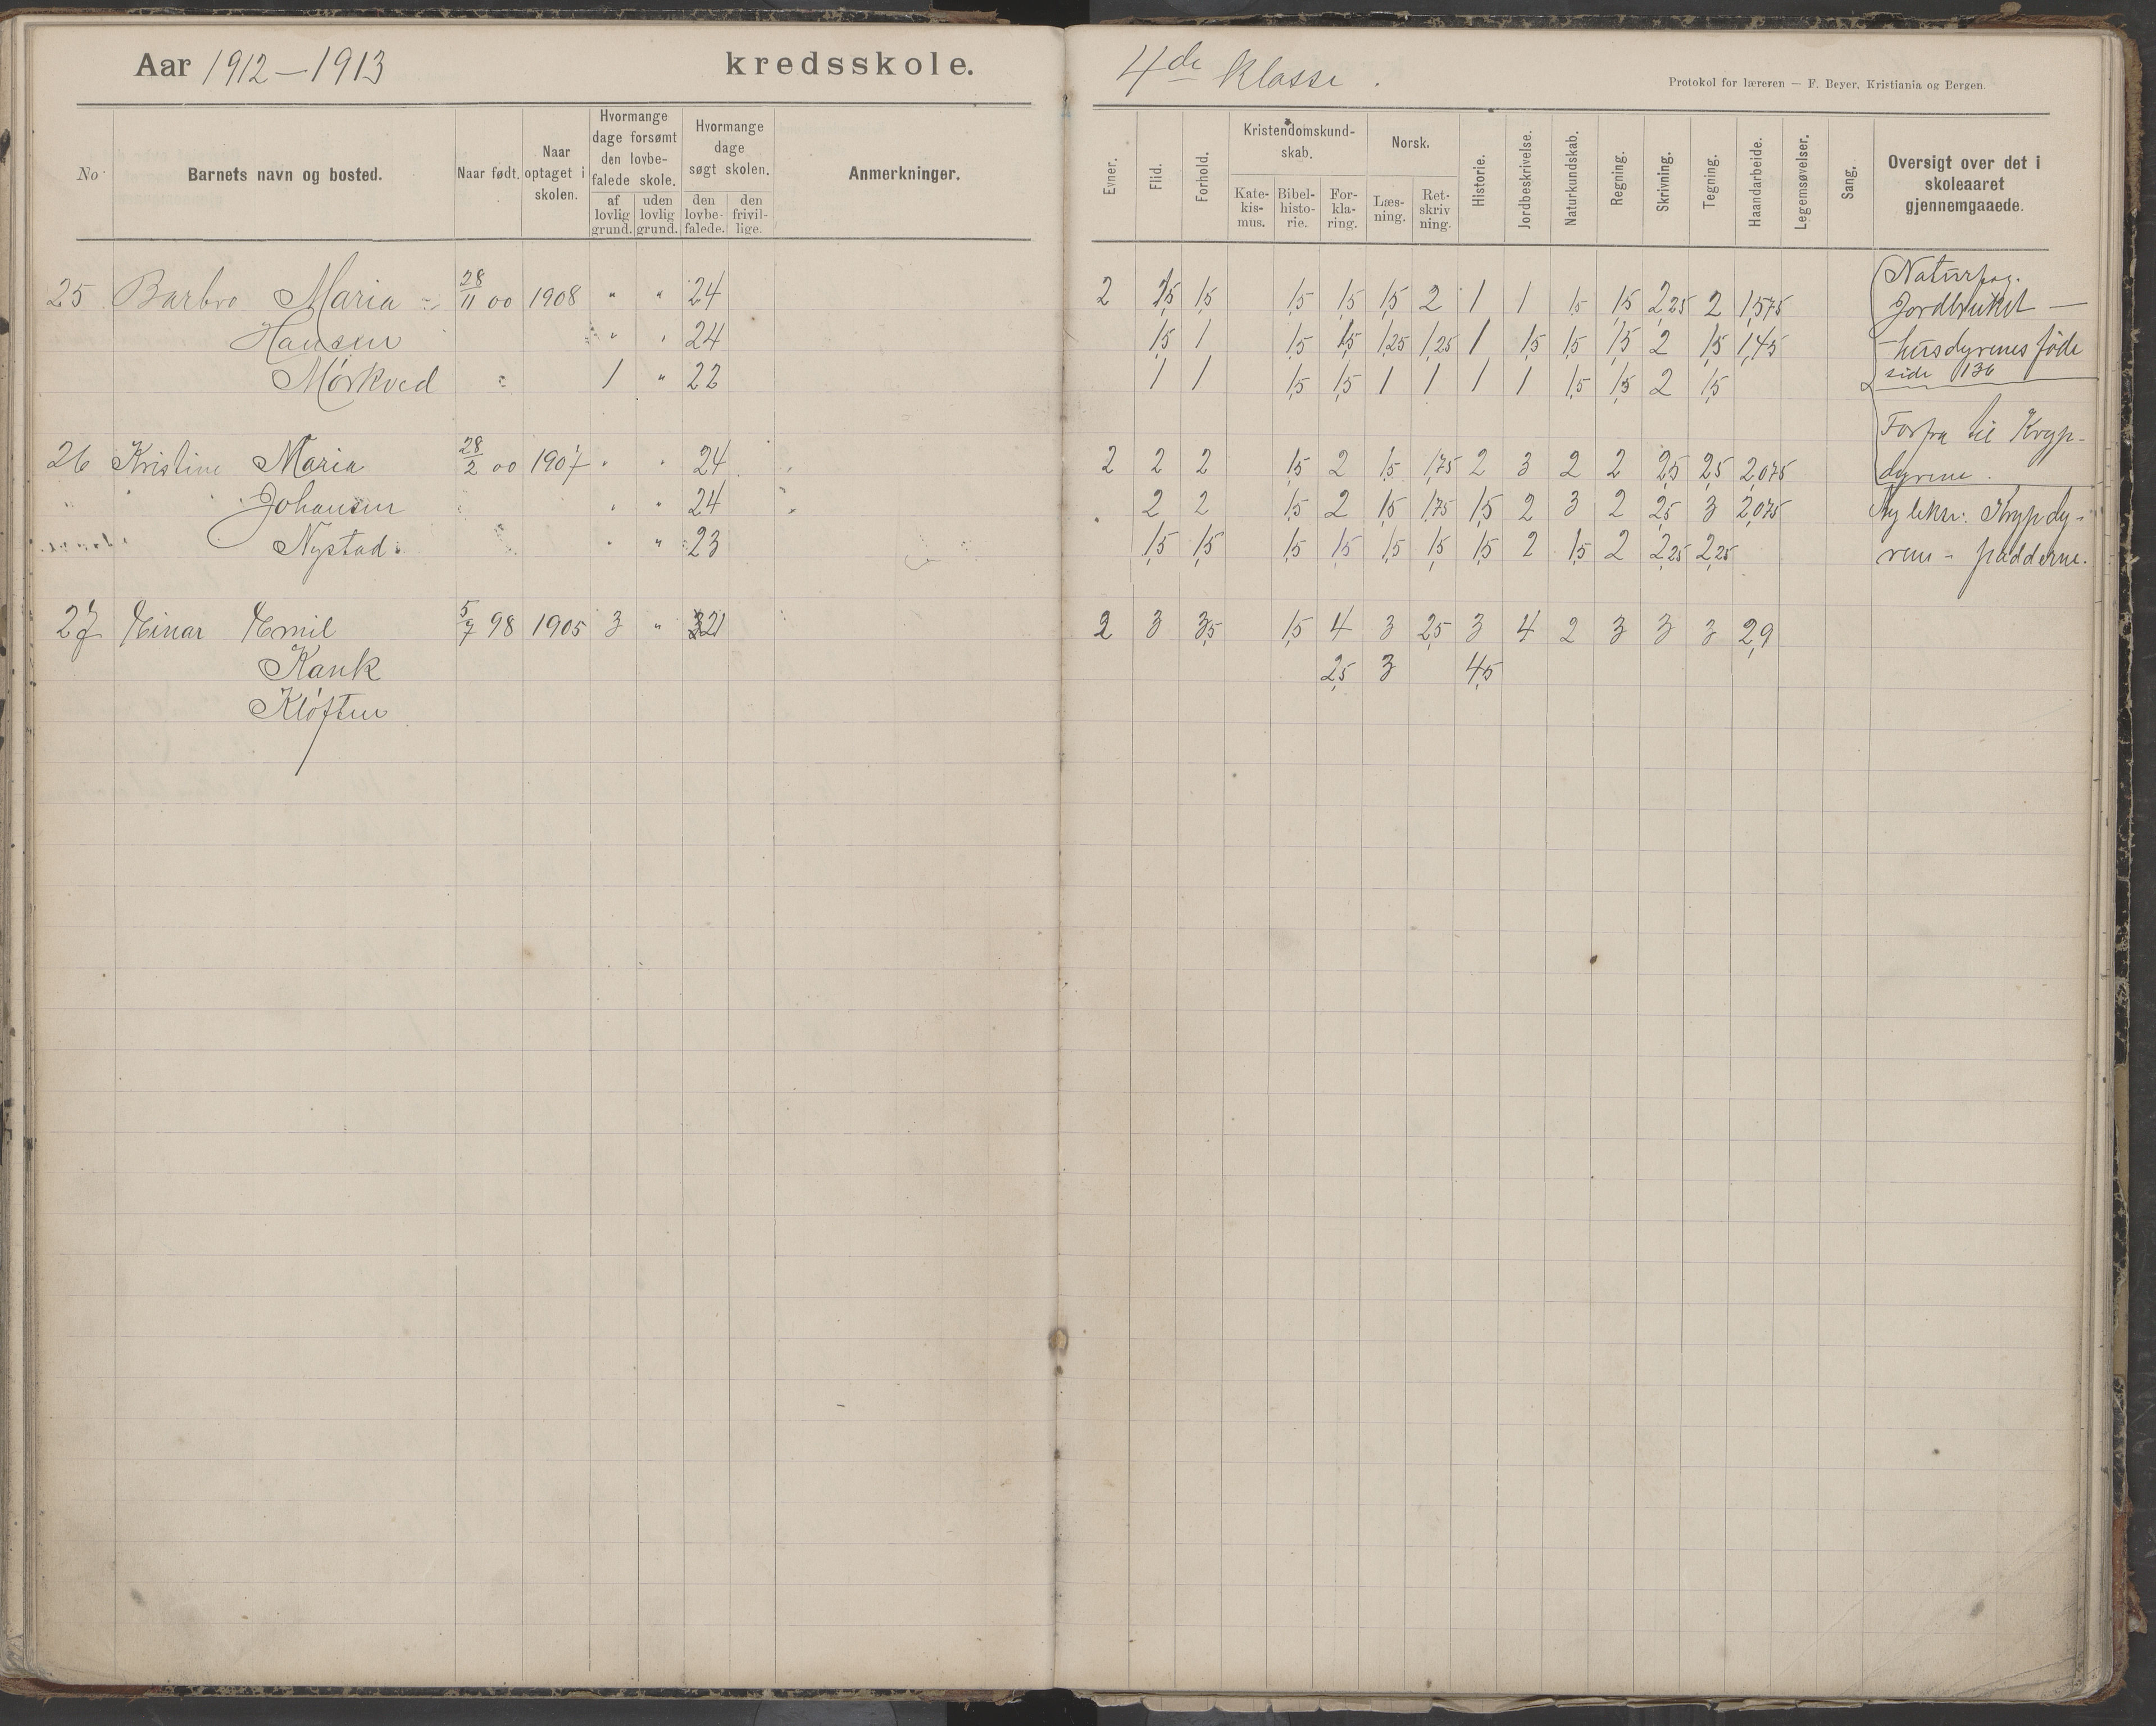 Aar 1912-1913 kredsskole.
4de klasse.
Protokol for læreren — F. Beyer, Kristiania og Bergen.
No
Barnets navn og bosted.
Naar født.
Naar optaget i skolen.
Hvormange dage forsømt den lovbe-falede skole.
af lovlig grund.
uden lovlig grund.
Hvormange dage søgt skolen.
den lovbe-falede.
den frivil-lige.
Anmerkninger.
Evner.
Flid.
Forhold.
Kristendomskund-skab.
Kate-kis-mus.
Bibel-histo-rie.
For-kla-ring.
Norsk.
Læs-ning.
Ret-skriv ning.
Historie.
Jordbeskrivelse.
Naturkundskab.
Regning.
Skrivning.
Tegning.
Haandarbeide.
Legemsøvelser.
Sang.
Oversigt over det i skoleaaret gjennemgaaede.
25 Barbro Maria - 28/11 00 1908 " " 24 2 1,5 1,5 1,5 1,5 1,5 2 1 1 1,5 1,5 2,25 2 1,575
Hansen " " 24 1,5 1 1,5 1,5 1,25 1,25 1 1,5 1,5 1,5 2 1,5 1,45
Mørkved 1 " 22 1 1 1,5 1,5 1 1 1 1 1,5 1,5 2 1,5
26 Kristine Maria 28/2 00 1907 " " 24 2 2 2 1,5 2 1,5 1,75 2 3 2 2 2,5 2,5 2,075
Johansen " " 24 2 2 1,5 2 1,5 1,75 1,5 2 3 2 2,5 3 2,075
Nystad. " " 23 1,5 1,5 1,5 1,5 1,5 1,5 1,5 2 1,5 2 2,25 2,25
27 Einar Emil 5/7 98 1905 3 " 21 2 3 3,5 1,5 4 3 2,5 3 4 2 3 3 3 2,9
Kank 2,5 3 4,5
Kløften
Naturfag.
Jordbruket —
husdyrenes føde
side 136
Forfra til Kryp-
dyrene.
Ny lekse: Krypdy-
rene - padderne.